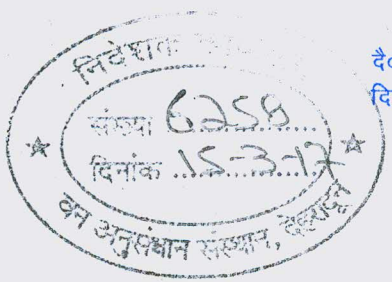 निदेशक
संख्या 6258
दिनांक 15-3-17
वन अनुसंधान संस्थान, देहरादून